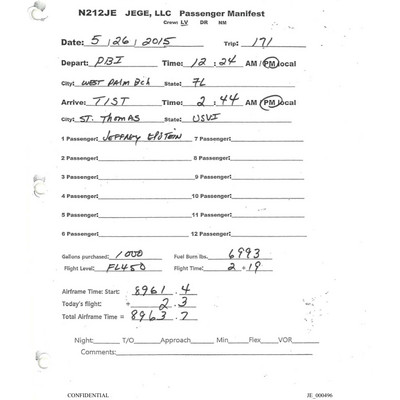 N212JE JEGE, LLC Passenger Manifest
Crew: LV DR MM
Date: 5 / 26 / 2015 Trip: 171
Depart: PBI Time: 12 : 24 AM / PM local
City: WEST PALM BCH State: FL
Arrive: TIST Time: 2 : 44 AM / PM local
City: ST. THOMAS State: USVI
1 Passenger: JEFFREY EPSTEIN 7 Passenger:
2 Passenger: 8 Passenger:
3 Passenger: 9 Passenger:
4 Passenger: 10 Passenger:
5 Passenger: 11 Passenger:
6 Passenger: 12 Passenger:
Gallons purchased: 1000 Fuel Burn lbs. 6993
Flight Level: FL450 Flight Time: 2 + 19
Airframe Time: Start: 8961 . 4
Today's flight: + 2 . 3
Total Airframe Time = 8963 . 7
Night: T/O Approach Min Flex VOR
Comments:
CONFIDENTIAL JE_000496